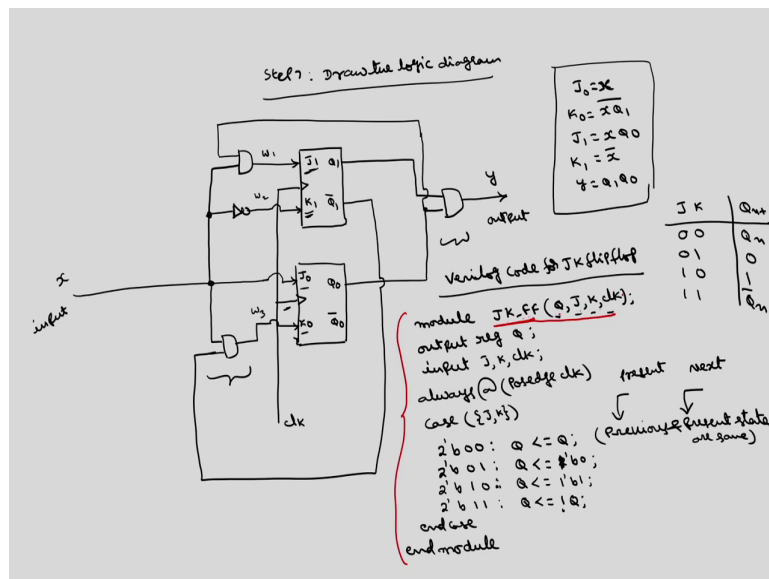 Step 7: Draw the logic diagram
J₀ = x
K₀ = \overline{xQ₁}
J₁ = xQ0
K₁ = x̅
y = Q₁Q0
w₁
J₁ Q₁
w₂
K₁ Q̅₁
y
output
x
input
J₀ Q₀
w₃
K0 Q̅0
clk
J K Qn+
0 0 Qn
0 1 0
1 0 1
1 1 Q̅n
Verilog code for JK flipflop
module JK_FF (Q,J,K,clk);
output reg Q;
input J,K,clk;
always @ (Posedge clk)
case ({J,K})
2'b00: Q <= Q;
2'b01: Q <= 1'b0;
2'b10: Q <= 1'b1;
2'b11: Q <= !Q;
endcase
endmodule
present next
(Previous & Present state
are same)